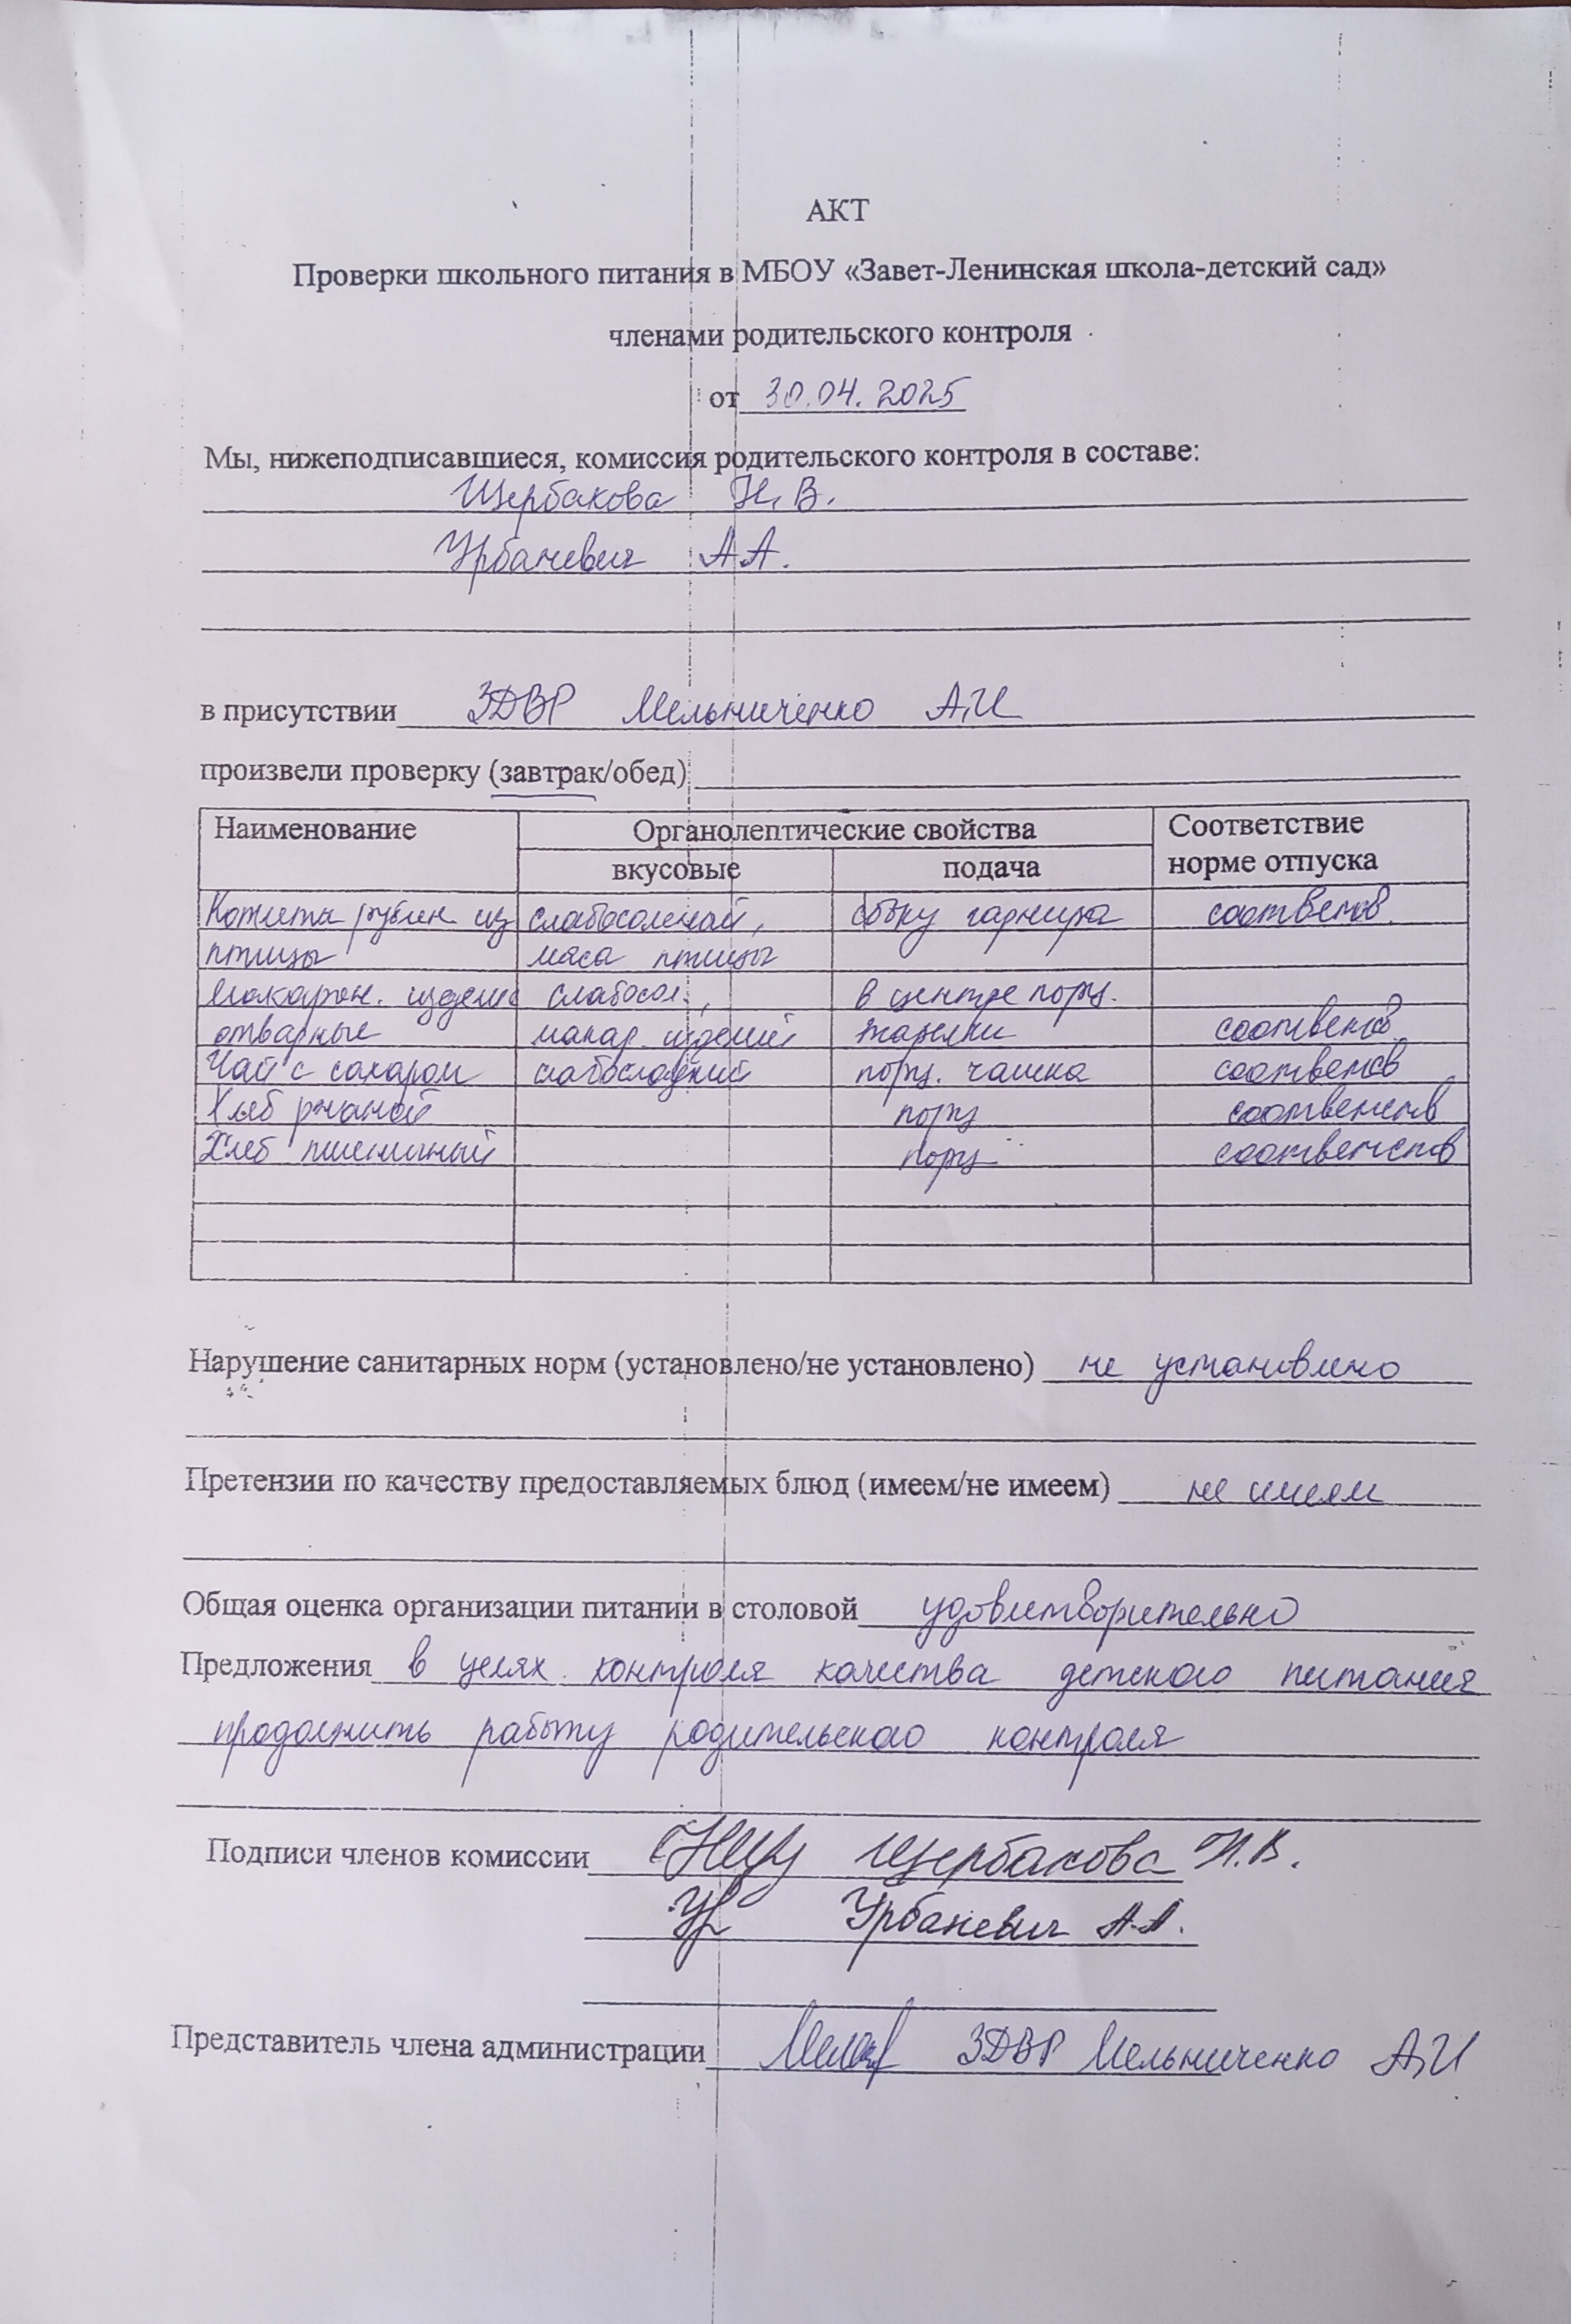 АКТ
Проверки школьного питания в МБОУ «Завет-Ленинская школа-детский сад»
членами родительского контроля
от 30.04.2025
Мы, нижеподписавшиеся, комиссия родительского контроля в составе:
Щербакова Н.В.
Урбаневич А.А.
в присутствии ЗДВР Мельниченко А.И
произвели проверку (завтрак/обед)
Наименование Органолептические свойства Соответствие норме отпуска
вкусовые подача
Котлеты рублен. из слабосоленый, сбоку гарнира соответств.
птицы мяса птицы
Макарон. издел. слабосол., в центре порц.
отварные макар. изделий тарелки соответств
Чай с сахаром слабосладкий порц. чашка соответств
Хлеб ржаной порц соответств
Хлеб пшеничный порц соответств
Нарушение санитарных норм (установлено/не установлено) не установлено
Претензии по качеству предоставляемых блюд (имеем/не имеем) не имеем
Общая оценка организации питании в столовой удовлетворительно
Предложения в целях контроля качества детского питания
продолжить работу родительского контроля
Подписи членов комиссии Щербакова Н.В.
Урбаневич А.А.
Представитель члена администрации ЗДВР Мельниченко А.И